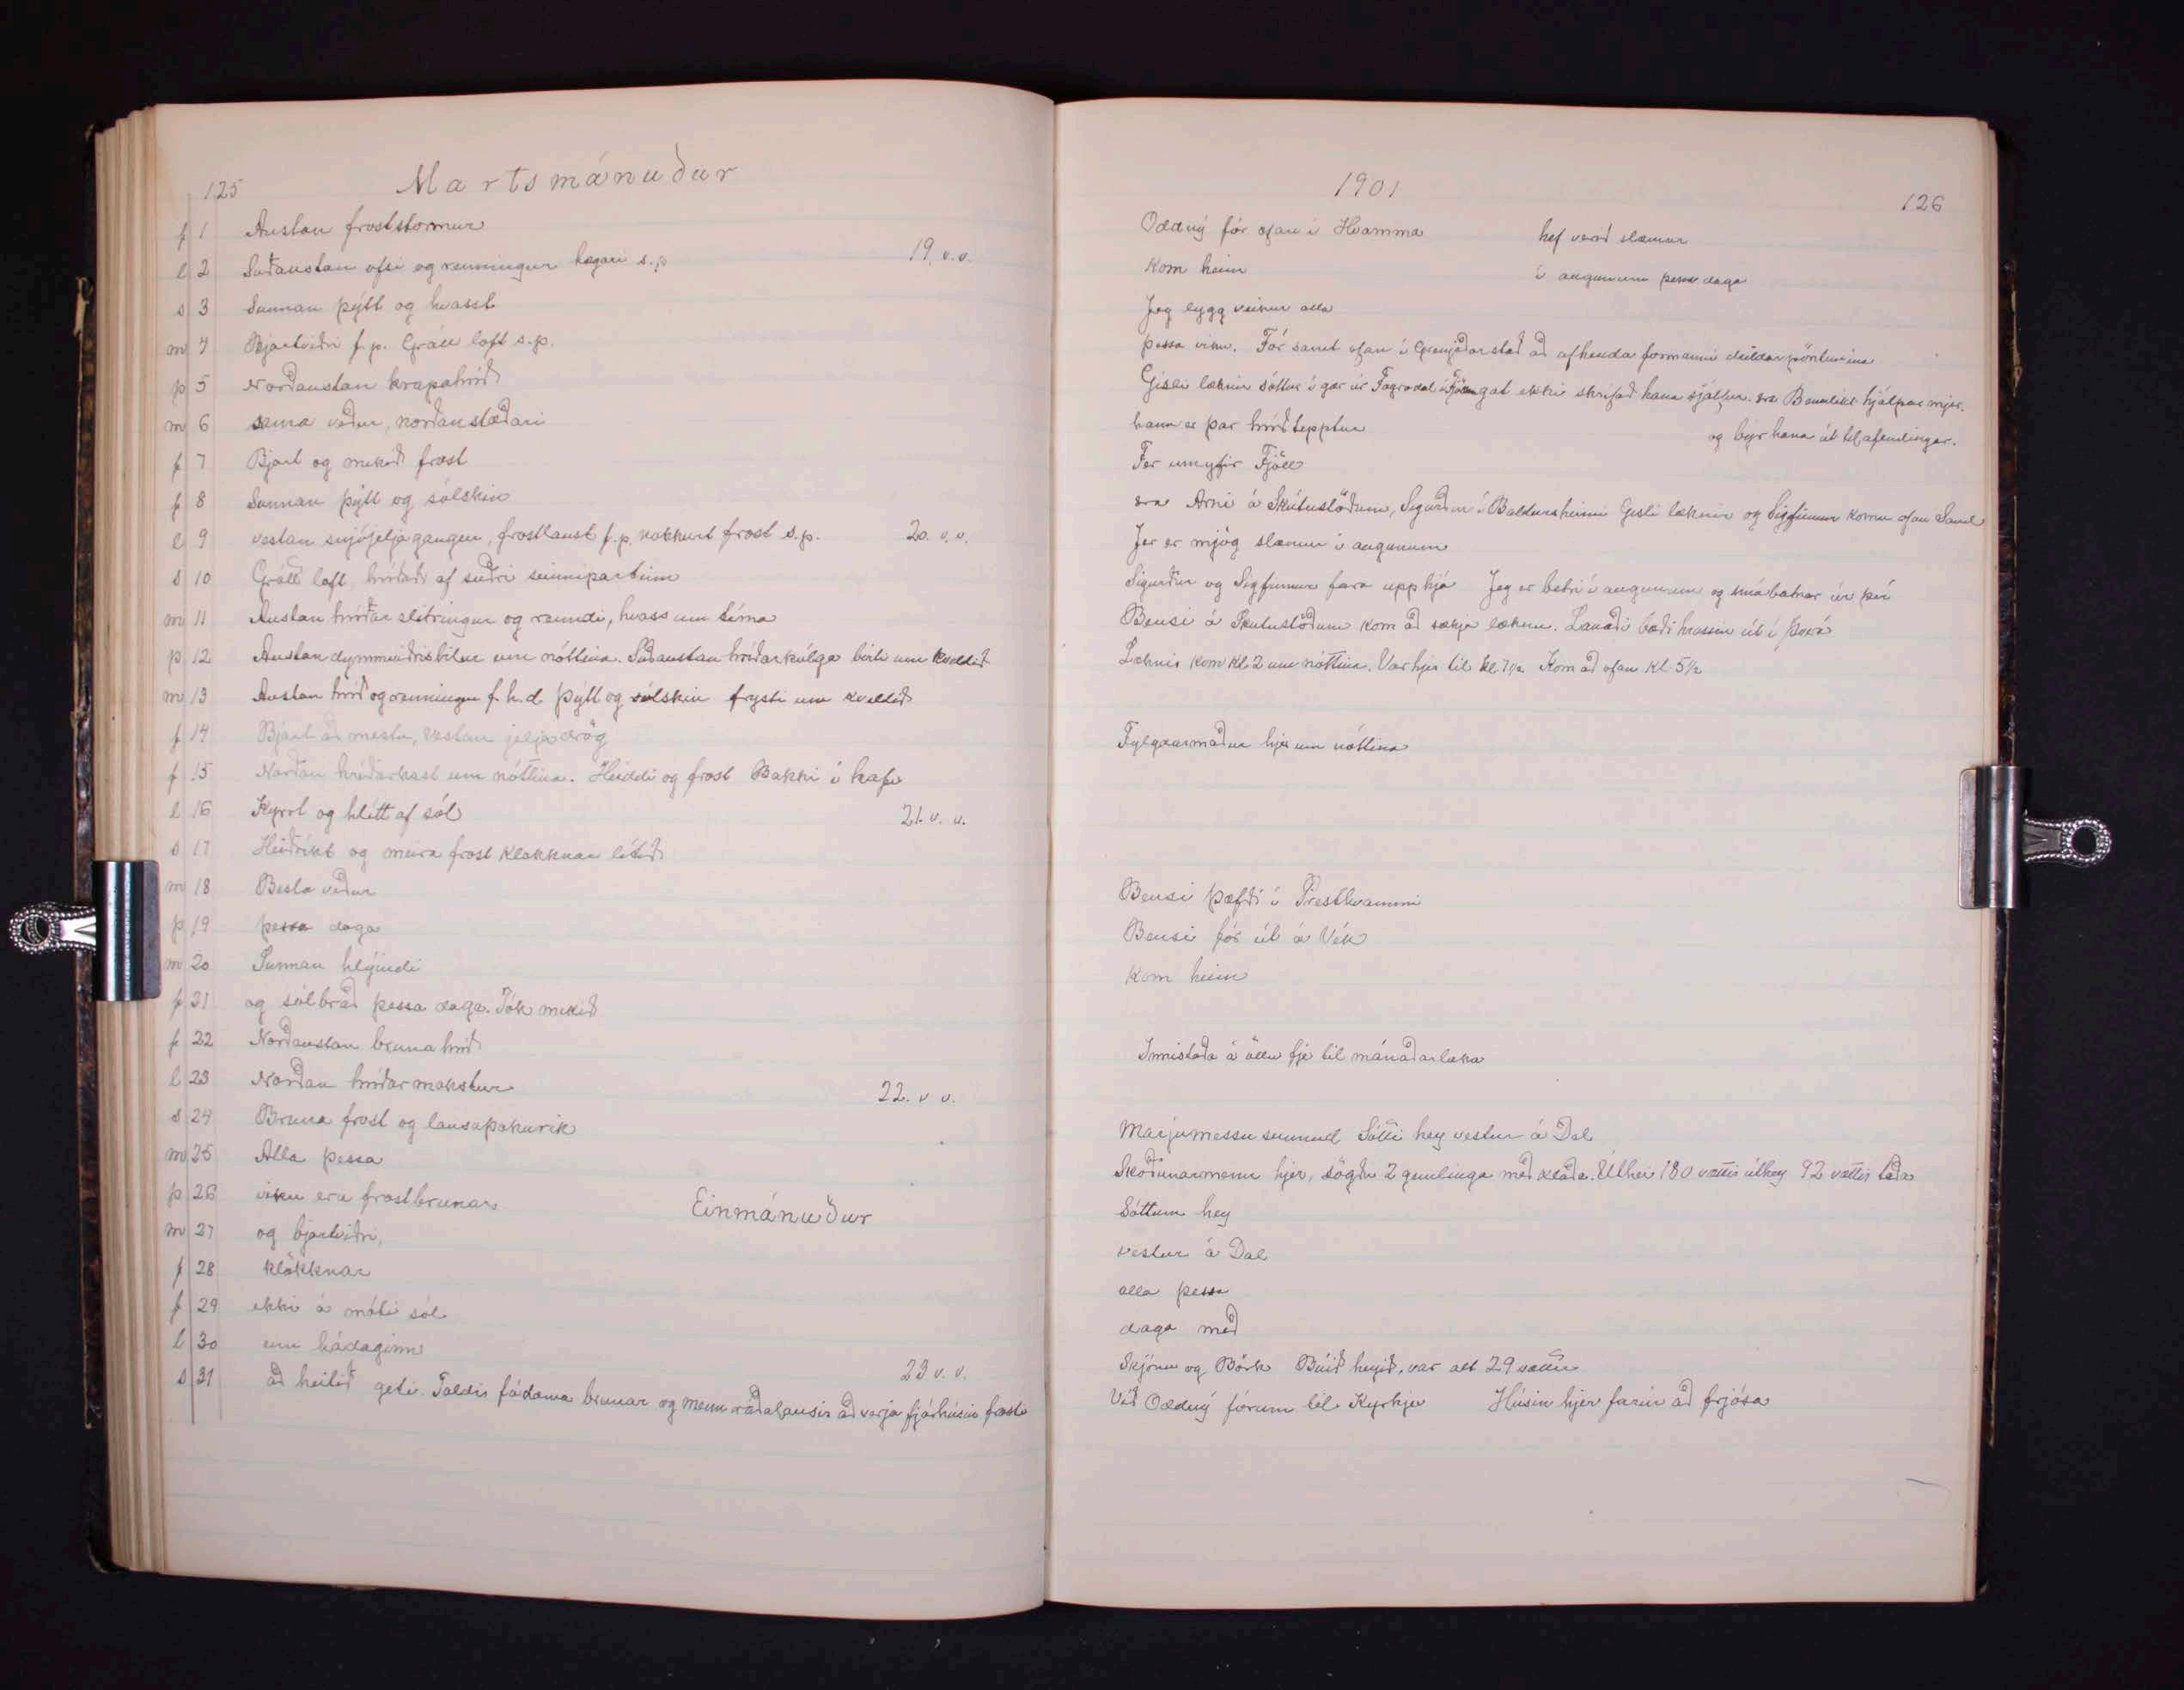 125
Martsmánuður
f 1 Austan froststormur
l 2 Suðaustan ofsi og renningur hægari s.p. 19. v.v.
s 3 Sunnan þýtt og hvasst
m 4 Bjartviðri f.p. Grátt loft s.p.
þ 5 Norðaustan krapahríð
m 6 sama veður, norðanstæðari
f 7 Bjart og mikið frost
f 8 Sunnan þýtt og sólskin
l 9 vestan snjójeljagangur, frostlaust f.p. nokkurt frost s.p. 20. v.v.
s 10 Grátt loft, hríðaði af suðri seinnipartinn
m 11 Austan hríðar slitringur og renndi, hvass um tíma
þ 12 Austan dymmviðrisbilur um nóttina. Suðaustan hríðarkúlga birti um kveldið
m 13 Austan hríð og renningur f.h.d. þýtt og sólskin frysti um kveldið
f 14 Bjart að mestu, vestan jeljadrög
f 15 Norðan hríðarkast um nóttina. Heiddi og frost Bakki í hafi
l 16 Kyrrt og hlítt af sól 21. v. v.
s 17 Heiðríkt og meira frost klökknar lítið
m 18 Besta veður
þ 19 þessa daga
m 20 Sunnan hlýindi
f 21 og sólbráð þessa daga. Tók mikið
f 22 Norðaustan bruna hríð
l 23 Norðan hríðar mokstur 22. v v.
s 24 Bruna frost og lausaþokurik
m 25 Alla þessa
þ 26 viku eru frostbrunar Einmánuður
m 27 og bjartviðri,
f 28 klökknar
f 29 ekki á móti sól
l 30 um hádaginn
s 31 að heitið geti. Taldir fádæma brunar og menn ráðalausir að verja fjárhúsin frosti 23 v. v.
1901
126
Oddný fór ofan í Hvamma hef verið slæmur
kom heim í augunum þessa daga
Jeg ligg veikur alla
þessa viku. Fór samt ofan í Grenjaðarstað að afhenda formanni deildarpöntunina
Gísli læknir sóttur í gær úr Fagradal á Fjöllum gat ekki skrifað hana sjálfur. sra Benedikt hjálpar mjer.
hann er þar hríðtepptur og býr hana út til afendingar.
Fer umyfir Fjöll
sra Arni á Skútustöðum, Sigurður í Baldursheimi Gísli læknir og Sigfinnur komu ofan Sand
Jer er mjög slæmur í augunum
Sigurður og Sigfinnur fara upp hjá Jeg er betri í augunum og smá batnar úr því
Bensi á Skutustöðum kom að sækja læknir. Lánaði bæði hrossin út í Þverá
Læknir kom kl 2 um nóttina. Var hjer til kl 7½ Kom að ofan kl 5½
Fylgdarmaður hjer um nóttina
Bensi þæfði í Presthvammi
Bensi fór út á Vík
kom heim
Innistaða á öllu fje til mánaðarloka
Marjumessu sunnud Sótti hey vestur á Dal
Skoðunarmenn hjer, sögðu 2 gemlinga með kláða. Úthei 180 vættir úthey 92 vættir taða
Sóttum hey
vestur á Dal
alla þessa
daga með
Skjóna og Börk Búið heyið, var alt 29 vættir
Við Oddný fórum til Kyrkju Húsin hjer farin að frjósa